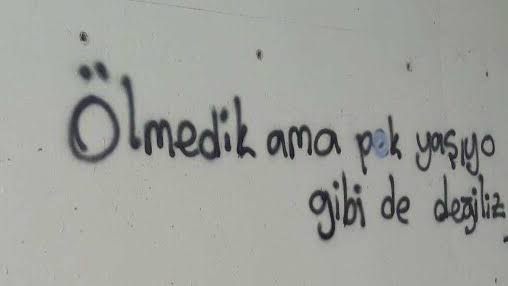 Ölmedik ama pek yaşıyo
gibi de değiliz